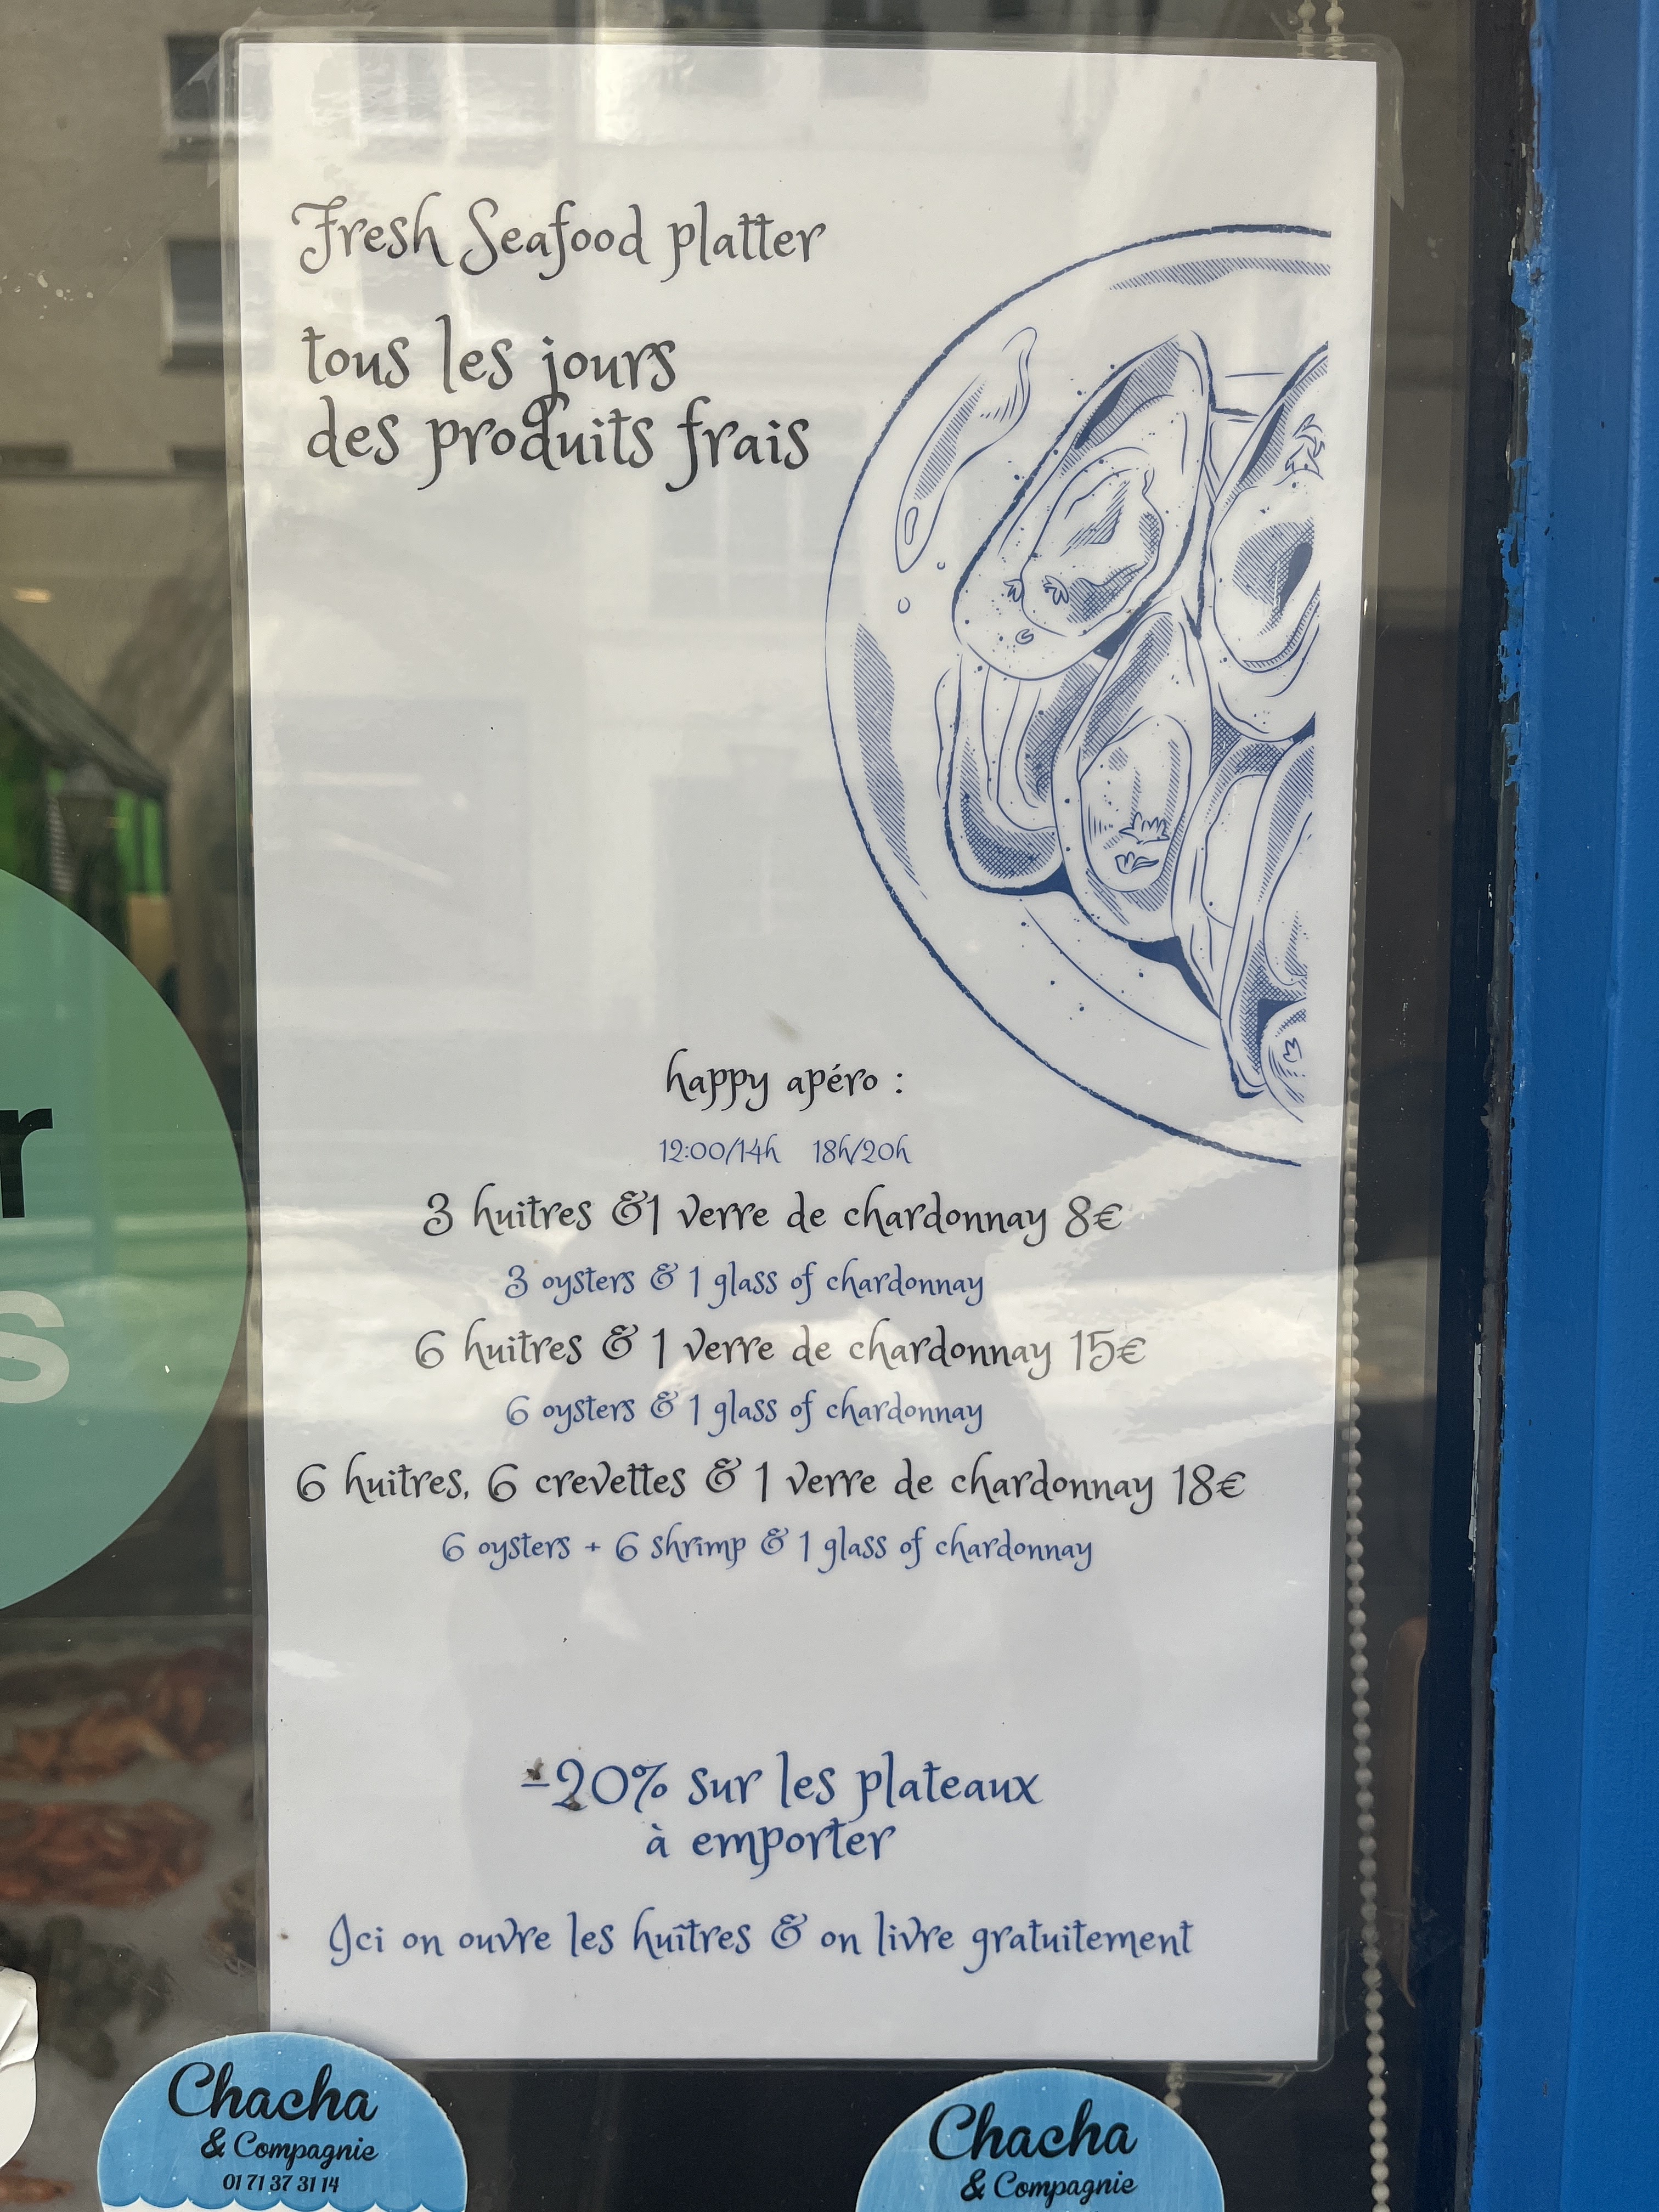 Fresh Seafood platter
tous les jours
des produits frais
happy apéro :
12:00/14h 18h/20h
3 huitres &1 verre de chardonnay 8€
3 oysters & 1 glass of chardonnay
6 huitres & 1 verre de chardonnay 15€
6 oysters & 1 glass of chardonnay
6 huitres, 6 crevettes & 1 verre de chardonnay 18€
6 oysters + 6 shrimp & 1 glass of chardonnay
-20% sur les plateaux
à emporter
Ici on ouvre les huîtres & on livre gratuitement
Chacha
& Compagnie
01 71 37 31 14
Chacha
& Compagnie